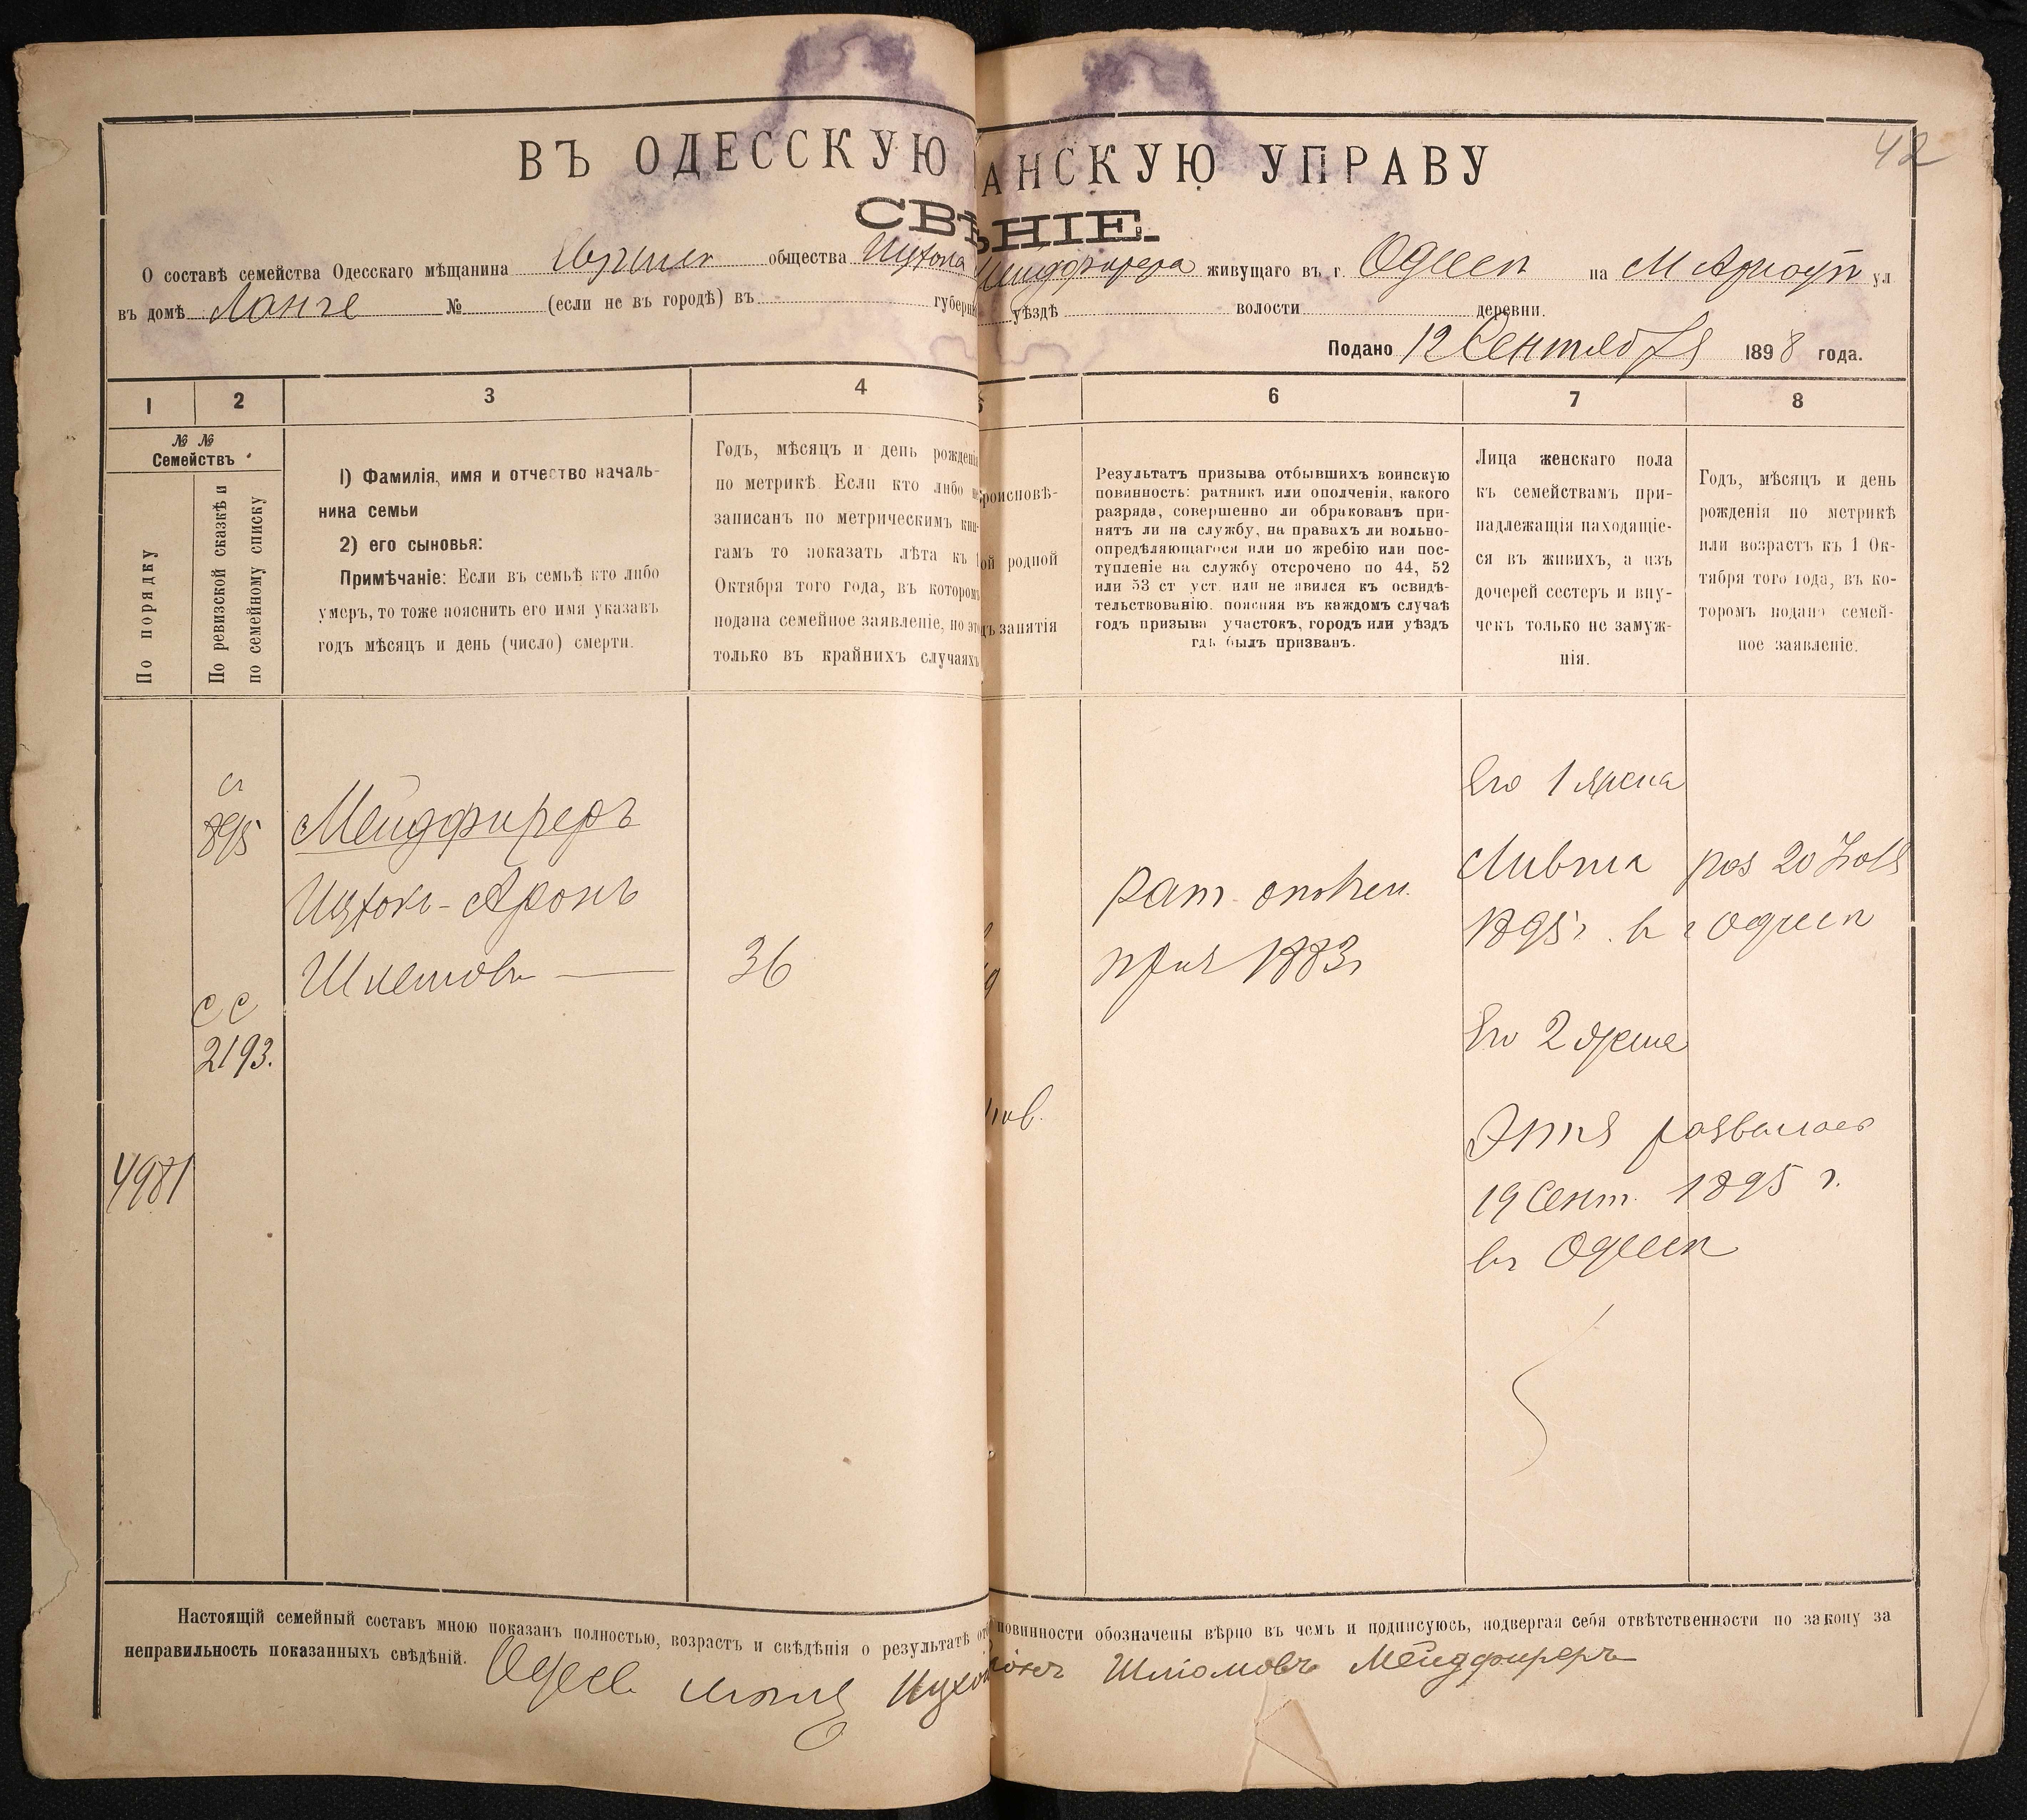 42
ВЪ ОДЕССКУЮ АНСКУЮ УПРАВУ
СВѢНІЕ.
О составѣ семейства Одесскаго мѣщанина общества Ицхока Мейдфирера живущаго въ г. Одессѣ на М Арнаут ул
въ домѣ Ланге № (если не въ городѣ) въ губерн уѣздѣ волости деревни.
Подано 12 Сентября 1898 года.
1 2 3 4 5 6 7 8
№ № Семействъ
По порядку
По ревизской сказкѣ и
по семейному списку
1) Фамилія, имя и отчество началь-
ника семьи
2) его сыновья:
Примѣчаніе: Если въ семьѣ кто либо
умеръ, то тоже пояснить его имя указавъ
годъ мѣсяцъ и день (число) смерти.
Годъ, мѣсяцъ и день рожденія
по метрикѣ. Если кто либо не
записанъ по метрическимъ кни-
гамъ то показать лѣта къ 1
Октября того года, въ которомъ
подана семейное заявленіе, но это
только въ крайнихъ случаяхъ
роисповѣ-
ой родной
дъ занятія
Результатъ призыва отбывшихъ воинскую
повинность: ратникъ или ополченія, какого
разряда, совершенно ли обракованъ при-
нятъ ли на службу, на правахъ ли вольно-
опредѣляющагося или по жребію или пос-
тупленіе на службу отсрочено по 44, 52
или 53 ст уст. или не явился къ освидѣ-
тельствованію. поясняя въ каждомъ случаѣ
годъ призыва участокъ, городъ или уѣздъ
гдѣ былъ призванъ.
Лица женскаго пола
къ семействамъ при-
надлежащія находящіе-
ся въ живихъ, а изъ
дочерей сестеръ и вну-
чекъ только не замуж-
нія.
Годъ, мѣсяцъ и день
рожденія по метрикѣ
или возрастъ къ 1 Ок-
тября того года, въ ко-
торомъ подано семей-
ное заявленіе.
895
Мейдфиреръ
Ицхокъ-Аронъ
Шлемовъ
36
Рат. ополчен.
1883г
Его 1 жена
1895г. в г Одессѣ
с с
2193.
Его 2 жена
Этля развелась
19 Сент. 1895 г.
въ Одессѣ
4981
Настоящій семейный составъ мною показанъ полностью, возрастъ и свѣдѣнія о результатѣ от повинности обозначены вѣрно въ чемъ и подписуюсь, подвергая себя отвѣтственности по закону за
неправильность показанныхъ свѣдѣній.
Шліомовъ Мейдфиреръ